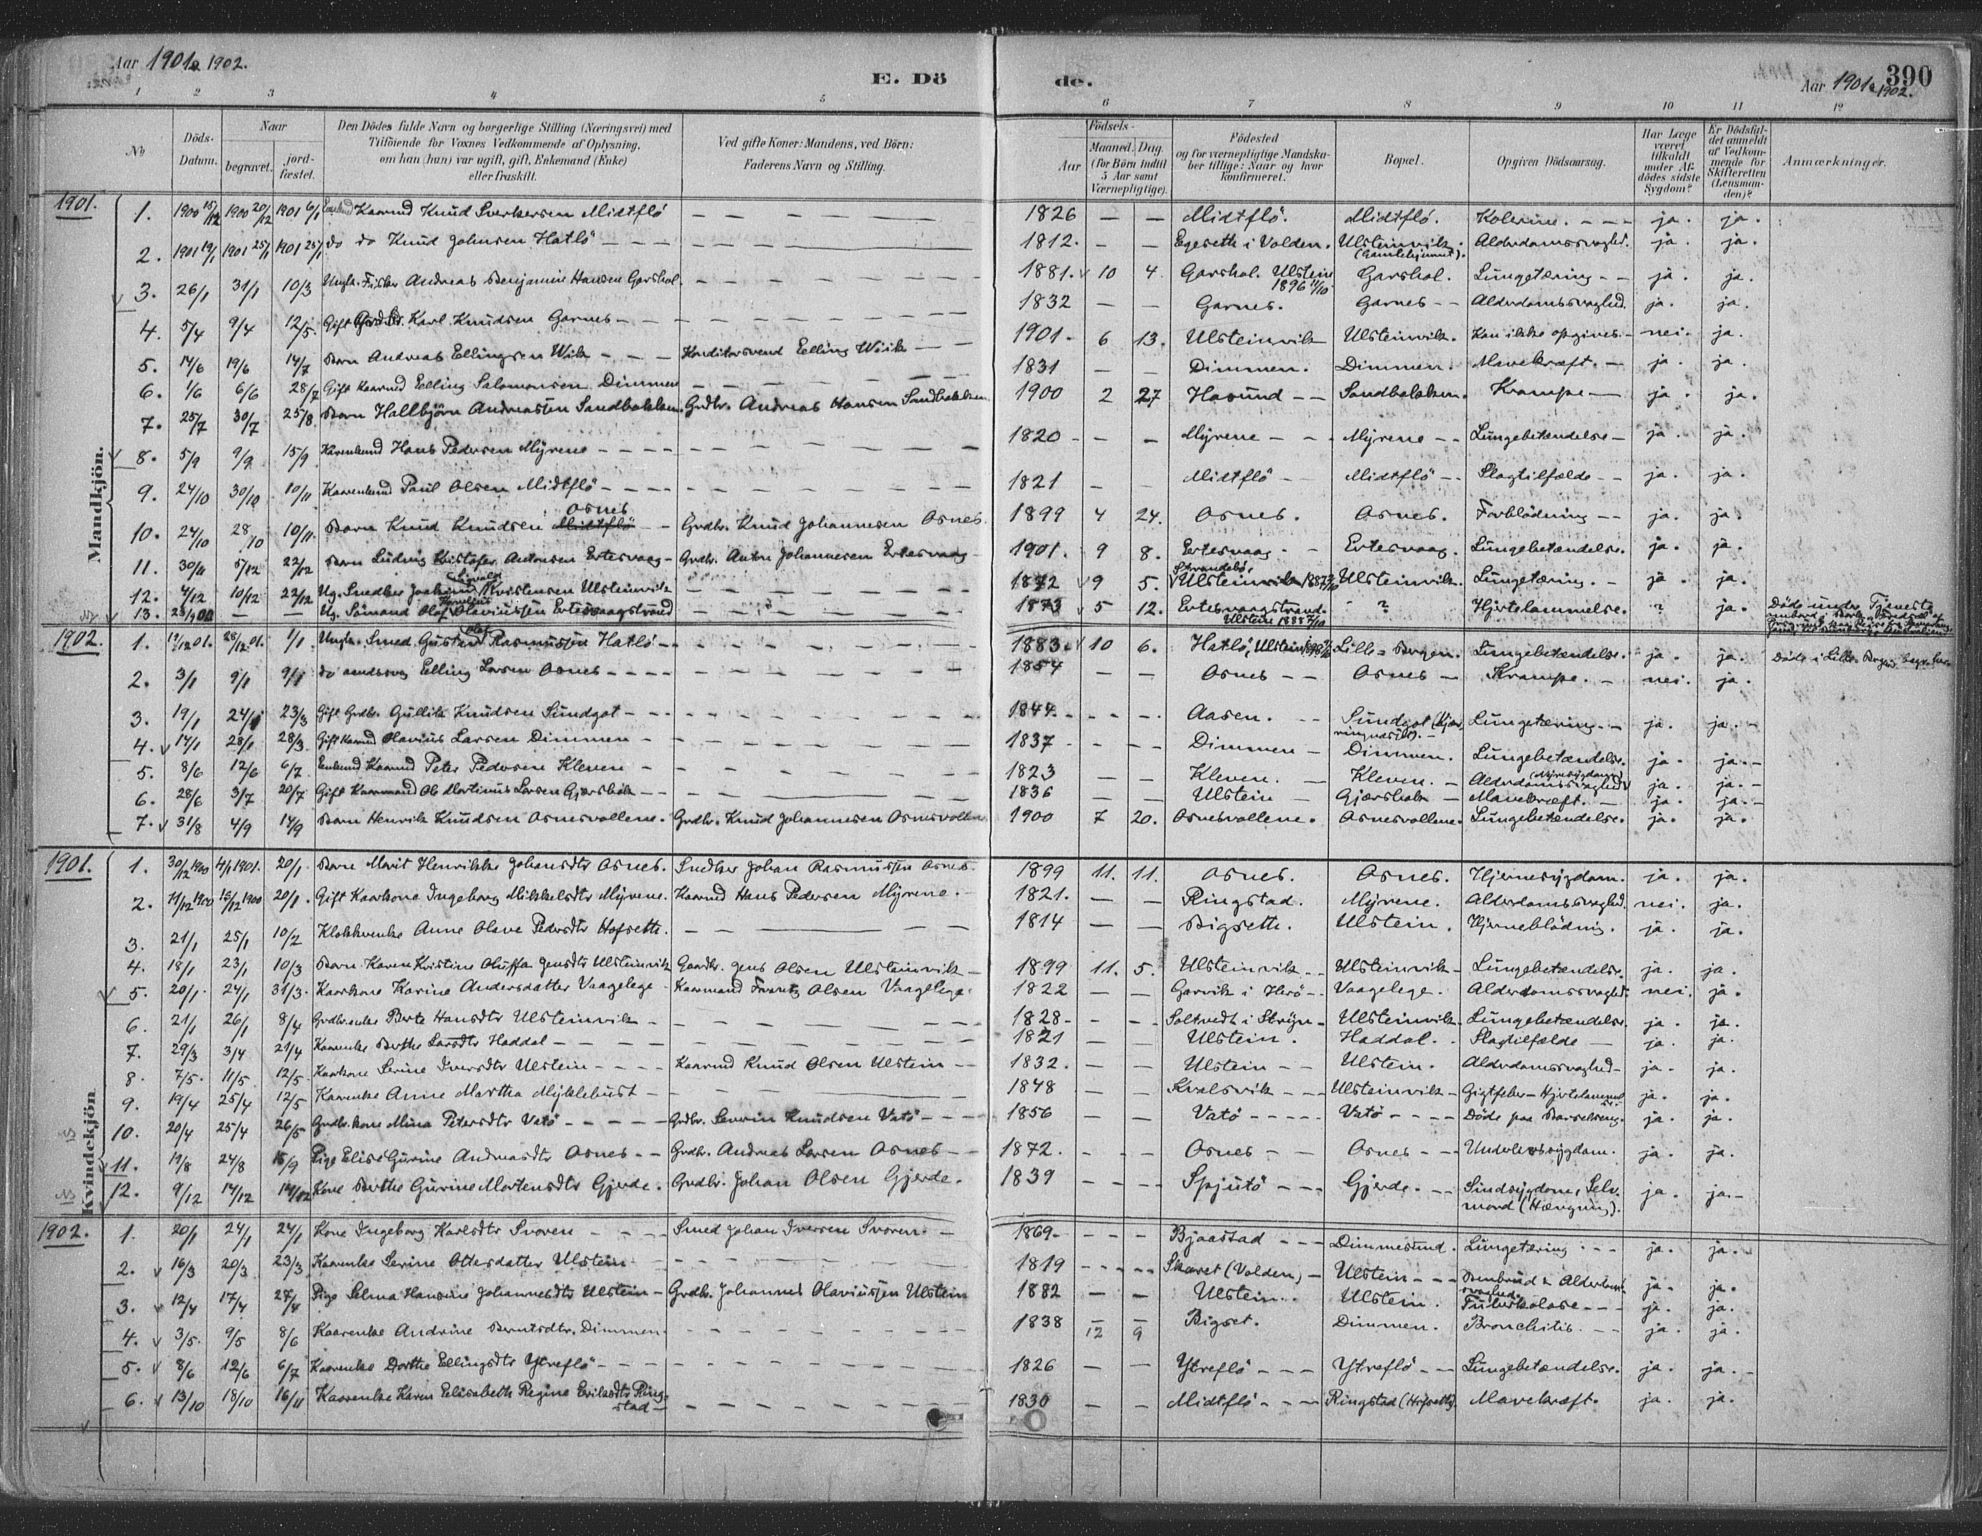 Aar 1901 & 1902.
E. Dö
de.
Aar 1901 & 1902.
390
1 2 3 4 5 6 7 8 9 10 11 12
No
Döds-Datum.
Naar
begravet.
jord-fæstet.
Den Dödes fulde Navn og borgerlige Stilling (Næringsvei) med
Tilföiende for Voxnes Vedkommende af Oplysning,
om han (hun) var ugift, gift, Enkemand (Enke)
eller fraskilt.
Ved gifte Koner: Mandens, ved Börn:
Faderens Navn og Stilling.
Födsels-
Aar
Maaned. Dag.
(for Börn indtil
5 Aar samt
Værnepligtige).
Födested
og for værnepligtige Mandska-
ber tillige: Naar og hvor
konfirmeret.
Bopæl.
Opgiven Dödsaarsag.
Har Læge
været
tilkaldt
under Af-
dödes sidste
Sygdom?
Er Dödsfal-
det anmeldt
af Vedkom-
mende for
Skifteretten
(Lensman-
den)?
Anmærkninger.
Mandkjön.
1901.
1. 1900 15/12 1900 20/12 1901 6/1 Kaarmd Knud Sverkersen Midtflö 1826 Midtflö. Midtflö. Kolerine. ja. ja.
2. 1901 19/1 1901 25/1 1901 25/1 do do Knud Johnsen Hatlö 1812. Egesette i Volden. Ulsteinvik. (Gamlehjemmet). Alderdomssvaghed. ja. ja.
3. 26/1 31/1 10/3 Ungk. Fisker Andreas Benjamin Hansen Garshol. 1881. 10 4. Garshol. Ulstein 1896 11/10 Garshol. Lungetæring ja. ja.
4. 5/4 9/4 12/5. Gift Grdbr. Karl Knudsen Garnes 1832 Garnes. Garnes Alderdomssvaghed. ja. ja.
5. 14/6 19/6 14/7 Barn Andreas Ellingsen Wiik Konditorsvend Elling Wiik 1901. 6 13. Ulsteinvik Ulsteinvik. Kan ikke opgives nei. ja.
6. 1/6 6/6 28/7 Gift Kaarmd Elling Salomonsen Dimmen 1831 Dimmen. Dimmen. Mavekræft. ja. ja.
7. 25/7 30/7 25/8 Barn Hallbjörn Andreassen Sandbakken. Grdbr. Andreas Hansen Sandbakken 1900 2 27 Hasund Sandbakken. Krampe ja. ja.
8. 5/9 9/9 15/9 Kaarenkmd Hans Pedersen Myrene 1820 Myrene Myrene Lungebetændelse ja. ja.
9. 24/10 30/10 10/11 Kaarenkmd Paul Olsen Midtflö 1821 Midtflö Midtflö Slagtilfælde ja. ja.
10. 24/10 28/10 10/11 Barn Knud Knudsen Midtflö Osnes Grdbr. Knud Johannesen Osnes. 1899 4 24. Osnes. Osnes. Forblödning ja. ja.
11. 30/11 5/12 22/12 Barn Ludvig Kristofer Antonsen Ertesvaag Grdbr. Anton Johannesen Ertesvaag 1901. 9 8. Ertesvaag Ertesvaag. Lungebetændelse. ja. ja.
12. 4/12 10/12 22/12 Ug. Snedker Joakim Sigvald Kristensen Ulsteinvik 1872 9 5. Ulsteinvik Ulsteinvik. Lungetæring. ja ja.
13. Ug. Sömand Olaf Kornelius Olaviussen Ertesvaagstrand 1873 5 12. Ertesvaagstrand. Ulstein 1888 ? Hjertelammelse. ? ja. Döde under Tjeneste
1902.
1. 19/12 01. 28/12 01. 1/1 Ungk. Smed Gustav Olaf Rasmussen Hatlö 1883. 10 6. Hatlö, Ulstein Lille-Bergen. Lungebetændelse. ja. ja. Döde i Lille Bergen
2. 3/1 9/1 9/1 do Elling Larsen Osnes 1854 Osnes Osnes Krampe. nei. ja.
3. 19/1 24/1 23/3 Gift Grdbr. Gullik Knudsen Sundgot 1844. Aasen. Sundgot Lungetæring. ja. ja.
4. 14/1 28/1 28/3 Gift Kaarmd Olavius Larsen Dimmen 1837 Dimmen Dimmen. Lungebetændelse. ja. ja.
5. 8/6 12/6 6/7 Enkemd Kaarmd Peter Pedersen Kleven 1823 Kleven. Kleven. Alderdomssvaghed ja. ja.
6. 28/6 3/7 20/7 Gift Kaarmand Ole Martinus Larsen Gjærshole 1836 Ulstein Gjærshole Mavekræft. ja. ja.
7. 31/8 4/9 14/9 Barn Henrik Knudsen Osnesvollene. Grdbr. Knud Johannesen Osnesvollene 1900 7 20. Osnesvollene. Osnesvollene. Lungebetændelse. ja. ja.
Kvindekjön
1901.
1. 30/12 1900 4/1 1901. 20/1 Barn Marit Henrikke Johansdtr Osnes. Snedker Johan Rasmussen Osnes. 1899 11. 11. Osnes. Osnes. Hjernesygdom. ja. ja.
2. 11/12 1900 16/12 1900 20/1. Gift Kaarkone Ingeborg Mikkelsdtr Myrene. Kaarmd Hans Pedersen Myrene. 1821. Ringstad. Myrene. Alderdomssvaghed. nei. ja.
3. 21/1 25/1 10/2 Klokkerenke Anne Olave Pedersdtr Hofsette. 1814 Bigsette. Ulstein. Hjerneblödning. ja. ja.
4. 18/1 23/1 10/3 Barn Karen Kristine Oluffa Jensdtr Ulsteinvik Gaardbr. Jens Olsen Ulsteinvik 1899 11. 5. Ulsteinvik Ulsteinvik Lungebetændelse. ja. ja.
5. 20/1. 24/1 31/3. Kaarkone Karine Andersdatter Vaagelege Kaarmand Frantz Olsen Vaagelege. 1822 Garvik i Herö Vaagelege. Alderdomssvaghed. nei. ja.
6. 21/1 26/1 8/4 Grdbr.enke Berte Hansdtr Ulsteinvik 1828 Soltvedt i Stryn Ulsteinvik Lungebetændelse. ja. ja.
7. 29/3 3/4 21/4 Kaarenke Berthe Larsdtr Haddal 1821 Ulstein. Haddal. Slagtilfælde ja. ja.
8. 7/5. 11/5 12/5 Kaarkone Serine Iversdtr Ulstein Kaarmd Knud Olsen Ulstein 1832. Ulstein Ulstein. Alderdomssvaghed ja. ja.
9. 19/4 25/4 12/5 Kaarenke Anne Martha Myklebust 1848 Kvalsvik Ulsteinvik Gigtfeber Hjertelammelse ja. ja.
10. 20/4 25/4 26/5 Grdbr.kone Mina Petersdtr Vatö Grdbr. Severin Knudsen Vatö 1856 Vatö Vatö Döde paa Barselseng. ja. ja.
11. 19/8 24/8 15/9 Pige Elise Gurine Andreasdtr Osnes Grdbr. Andreas Larsen Osnes 1872. Osnes Osnes Underlivssygdom. ja. ja.
12. 9/12 14/12 14/12 Kone Berthe Gurine Mortensdtr Gjerde. Grdbr. Johan Olsen Gjerde. 1839 Spjutö Gjerde. Sindsygdom, Selvmord (Hængning). ja. ja.
1902.
1. 20/1 24/1 24/1 Kone Ingeborg Karlsdtr Svoren Smed Johan Iversen Svoren. 1869 Bjaastad Dimmesund. Lungetæring ja. ja.
2. 16/3 20/3 23/3 Kaarenke Serine Ottersdatter Ulstein 1819 Skaret (Volden) Ulstein Benbrud & Alderdomssvaghed. ja. ja.
3. 12/4 17/4 27/4 Pige Selma Hansine Johannesdtr Ulstein Grdbr. Johannes Olaviussen Ulstein 1882 Ulstein. Ulstein. Tuberkulose ja. ja.
4. 3/5. 9/5 8/6 Kaarenke Andrine Berntsdtr. Dimmen. 1838 12 9 Bigset. Dimmen. Bronchitis. ja. ja.
5. 8/6 12/6 6/7 Kaarenke Dorthe Ellingsdtr Ytreflö 1826 Ytreflö Ytreflö Lungebetændelse. ja. ja.
6. 13/10 18/10 16/11 Kaarenke Karen Elisabeth Regine Eriksdtr Ringstad 1830 Midtflö Ringstad (Hofsette). Mavekræft. ja. ja.